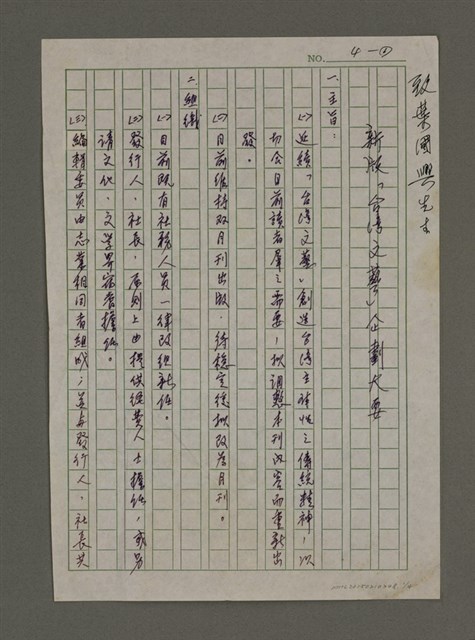 NO. 4-①
致葉國興先生
新版「台灣文藝」企劃大要
一、主旨：
㈠延續「台灣文藝」創造台灣主体性之傳統精神，以
切合目前讀者群之需要，擬調整本刊內容而重新出
發。
㈡目前維持双月刊出版，待穩定後擬改為月刊。
二、組織
㈠目前既有社務人員一律改組新任。
㈡發行人、社長，原則上由提供經費人士擔任，或另
請文化、文學界宿耆擔任。
㈢編輯委員由志業相同者組成；並与發行人、社長共